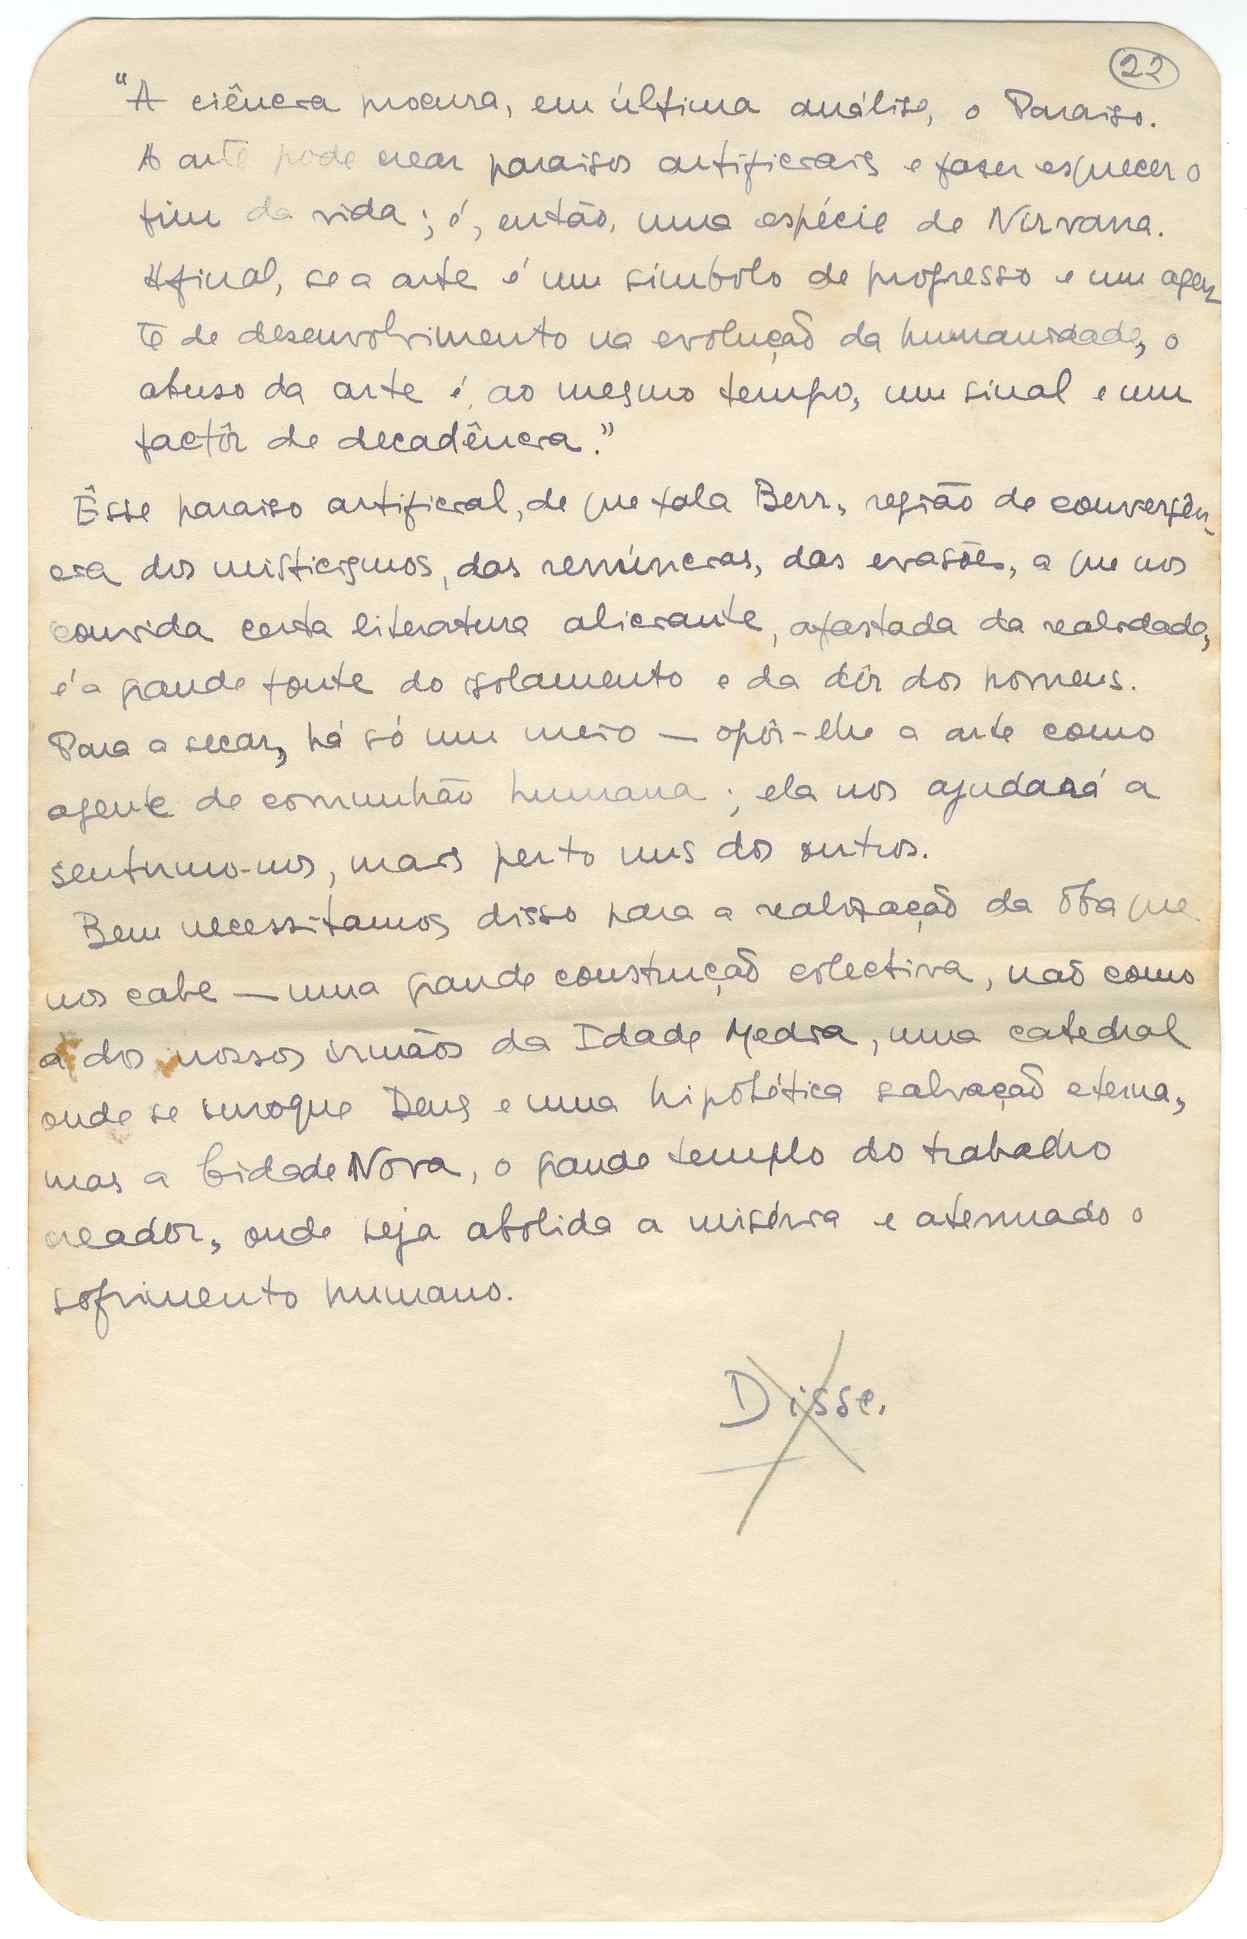 22
"A ciência procura, em última análise, o Paraiso.
A arte pode crear paraisos artificiais e fazer esquecer o
fim da vida; é, então, uma espécie de Nirvana.
Afinal, se a arte é um símbolo de progresso e um agen
te de desenvolvimento na evolução da humanidade, o
abuso da arte é, ao mesmo tempo, um sinal e um
factôr de decadência."
Êsse paraiso artificial, de que fala Berr, região de convergên
cia dos misticismos, das renúncias, das evasões, a que nos
convida certa literatura aliciante, afastada da realidade,
é a grande fonte do isolamento e da dôr dos homens.
Para a secar, há só um meio — opôr-lhe a arte como
agente de comunhão humana; ela nos ajudará a
sentirmo-nos, mais perto uns dos outros.
Bem necessitamos disso para a realização da obra que
nos cabe — uma grande construção colectiva, não como
a dos nossos irmãos da Idade Media, uma catedral
onde se invoque Deus e uma hipotética salvação eterna,
mas a Cidade Nova, o grande templo do trabalho
creador, onde seja abolida a miséria e atenuado o
sofrimento humano.
Disse.